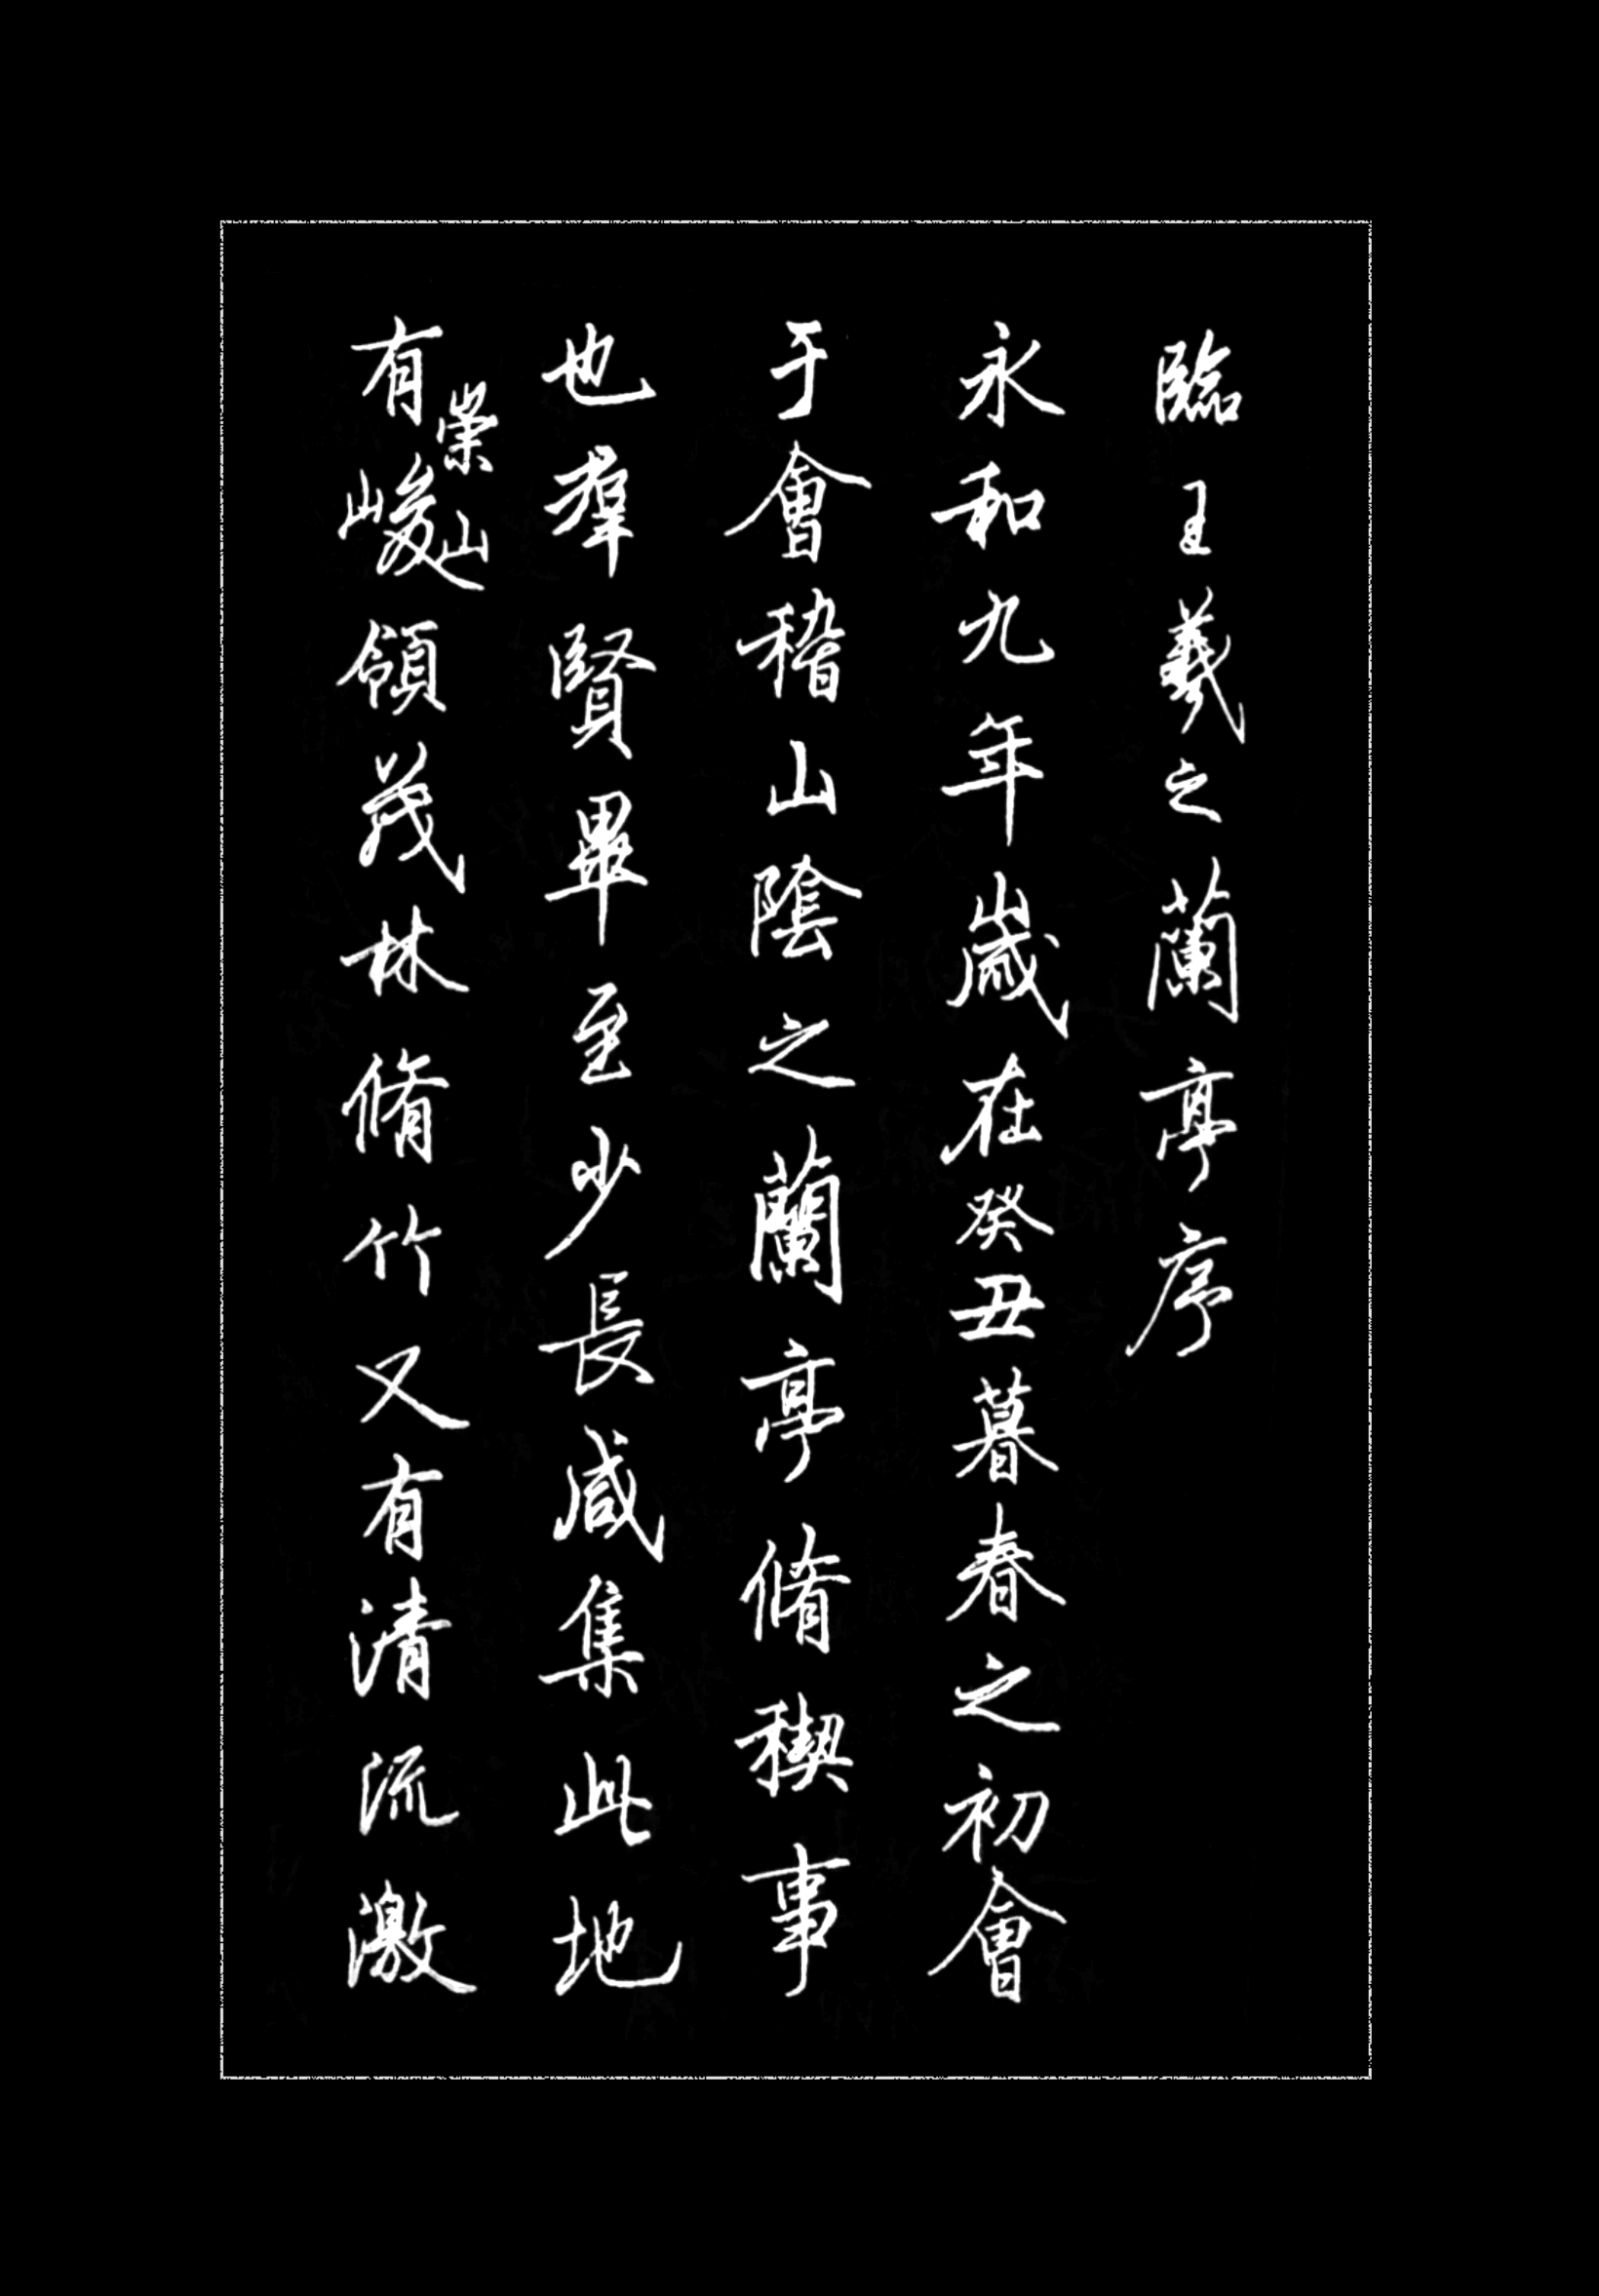 臨王羲之蘭亭序
永和九年歲在癸丑暮春之初會
于會稽山陰之蘭亭脩稧事
也羣賢畢至少長咸集此地
有崇山峻領茂林脩竹又有清流激